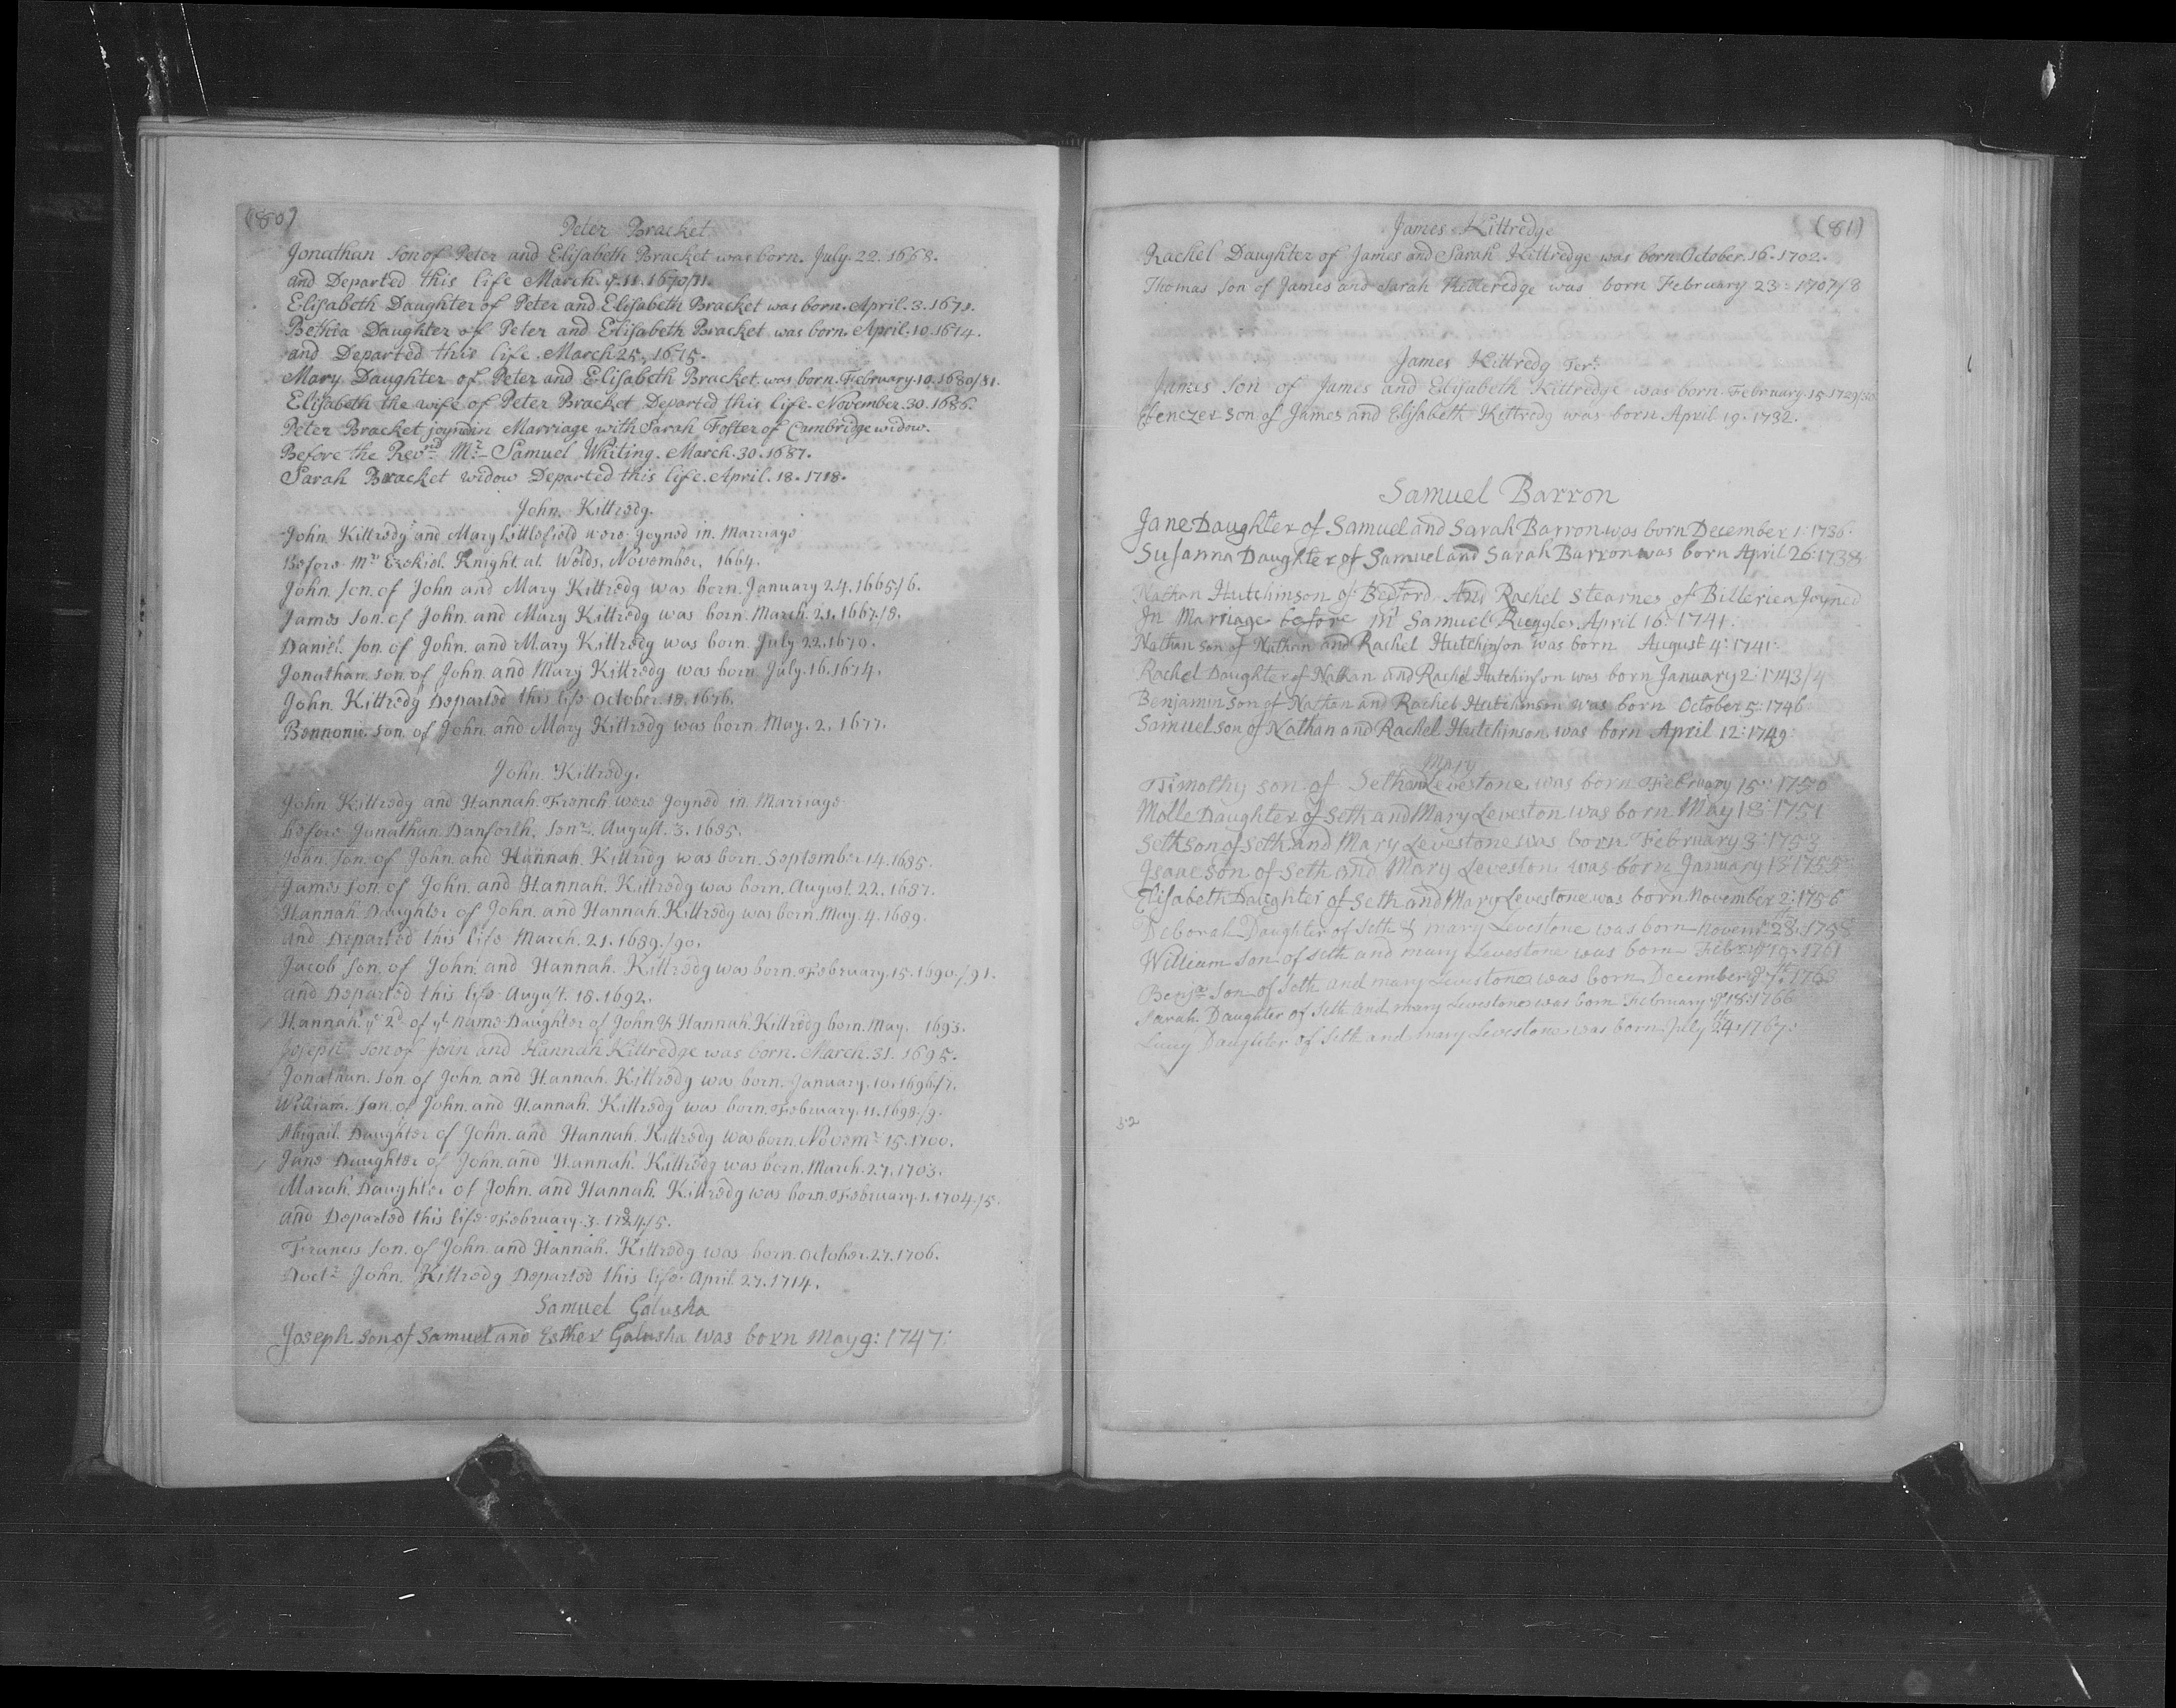 (80)
Peter Bracket
Jonathan son of Peter and Elisabeth Bracket was born. July. 22. 1668.
and Departed this life March. ye. 11. 1670/71.
Elisabeth Daughter of Peter and Elisabeth Bracket was born. April. 3. 1671.
Bethia Daughter of Peter and Elisabeth Bracket was born. April. 10. 1674.
and Departed this life. March 25. 1675.
Mary Daughter of Peter and Elisabeth Bracket. was born. February. 10. 1680/81.
Elisabeth the wife of Peter Bracket Departed this life. November. 30. 1686.
Peter Bracket joynd in Marriage with Sarah Foster of Cambridge widow.
Before the Revrd. Mr. Samuel Whiting. March. 30. 1687.
Sarah Bracket widow Departed this life. April. 18. 1718.
John. Kittredg.
John. Kittredg and Mary Littlefield were Joyned in. Marriage
Before Mr Ezekiel. Knight. at. Wells, November, 1664.
John. son. of John and Mary Kittredg was born. January 24. 1665/6.
James son. of John. and Mary Kittredg was born. March. 21. 1667/8.
Daniel. son. of John. and Mary Kittredg was born. July 22. 1670.
Jonathan. son. of John. and Mary Kittredg was born. July. 16. 1674.
John. Kittredg Departed this life October. 18. 1676.
Bennonie. son. of John. and Mary Kittredg was born. May. 2. 1677.
John. Kittredg.
John Kittredg and Hannah. French. were Joyned in. Marriage
before Jonathan. Danforth, Senr. August. 3. 1685.
John. son. of John. and Hannah. Kittredg was born. September 14. 1685.
James son. of John. and Hannah. Kittredg was born. August. 22. 1687.
Hannah. Daughter of John. and Hannah. Kittredg was born. May. 4. 1689.
and Departed this life March. 21. 1689/90.
Jacob son. of John. and Hannah. Kittredg was born. February. 15. 1690/91.
and Departed this life August. 18. 1692.
Hannah. ye 2d. of yt. name Daughter of John & Hannah. Kittredg born. May. 1693.
Joseph son of John and Hannah Kittredge was born. March. 31. 1695.
Jonathan. son. of John. and Hannah. Kittredg was born. January. 10. 1696/7.
William. son. of John. and Hannah. Kittredg was born. February. 11. 1698/9.
Abigail. Daughter of John. and Hannah. Kittredg was born. Novemr. 15. 1700.
Jane Daughter of John. and Hannah. Kittredg was born. March. 27. 1703.
Marah. Daughter of John. and Hannah. Kittredg was born. February. 1. 1704/5.
and Departed this life February. 3. 1704/5.
Francis son. of John. and Hannah. Kittredg was born. October. 27. 1706.
Doctr. John. Kittredg Departed this life April 27. 1714.
Samuel Galusha
Joseph son of Samuel and Esther Galusha was born May 9: 1747:
(81)
James Kittredge
Rachel Daughter of James and Sarah Kittredge was born October. 16. 1702.
Thomas son of James and Sarah Kitteredge was born February 23: 1707/8
James Kittredg Terr.
James son of James and Elisabeth Kittredge was born February. 15 1729/30
Ebenezer son of James and Elisabeth Kittredg was born April 19. 1732.
Samuel Barron
Jane Daughter of Samuel and Sarah Barron was born December 1: 1736.
Susanna Daughter of Samuel and Sarah Barron was born April 26: 1738
Nathan Hutchinson of Bedford And Rachel Stearnes of Billerica Joyned
In Marriage before Mr Samuel Ruggles. April 16: 1741:
Nathan son of Nathan and Rachel Hutchinson was born August 4: 1741:
Rachel Daughter of Nathan and Rachel Hutchinson was born January 2: 1743/4
Benjamin son of Nathan and Rachel Hutchinson was born October 5: 1746
Samuel son of Nathan and Rachel Hutchinson. was born April 12: 1749:
Timothy son of Seth and Mary Levestone was born February 15: 1750
Molle Daughter of Seth and Mary Leveston was born May 18: 1751
Seth son of Seth and Mary Levestone was born February 3: 1753
Isaac son of Seth and Mary Leveston was born January 13 1755
Elisabeth Daughter of Seth and Mary Levestone was born November 2: 1756
Deborah Daughter of Seth & mary Levestone was born Novemr. 28th. 1758
William son of seth and mary Levestone was born Febry. 19. 1761
Benja. Son of Seth and mary Levestone was born December ye 7th. 1763
Sarah. Daughter of Seth and mary Levestone was born February ye 18: 1766
Lucy Daughter of Seth and mary Levestone was born July 24th: 1767:
32